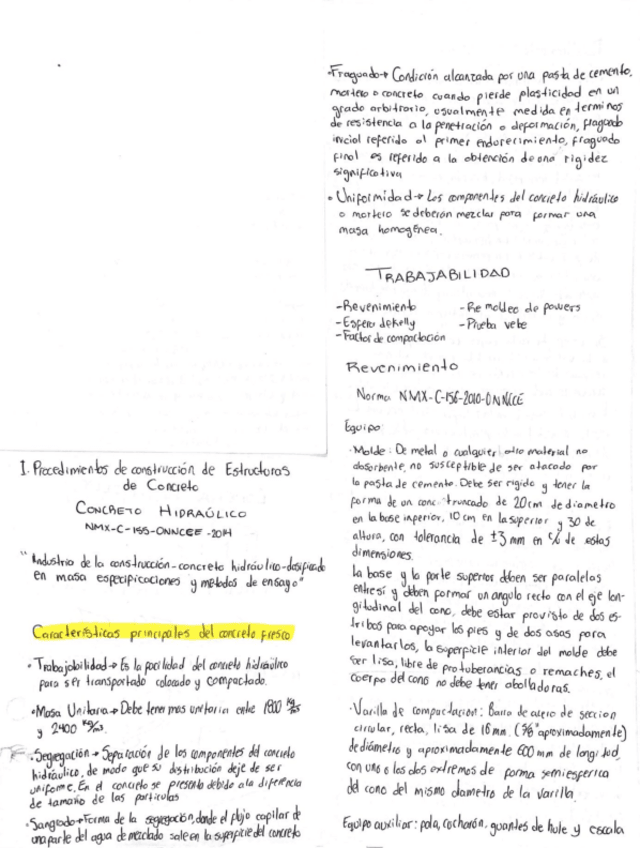 I. Procedimientos de construcción de Estructuras
de Concreto
CONCRETO HIDRAÚLICO
NMX-C-155-ONNCEE-2014
"Industria de la construcción-concreto hidráulico-dosificado
en masa especificaciones y métodos de ensayo"
Características principales del concreto fresco
• Trabajabilidad → Es la facilidad del concreto hidráulico
para ser transportado colocado y compactado.
• Masa Unitaria → Debe tener mas unitaria entre 1800 kg/m3
y 2400 kg/m3.
• Segregación → Separación de los componentes del concreto
hidráulico, de modo que su distribución deje de ser
uniforme, En el concreto se presenta debido a la diferencia
de tamaño de las particulas
• Sangrado → Forma de la segregación, donde el flujo capilar de
una parte del agua de mezclado sale en la superficie del concreto
• Fraguado → Condición alcanzada por una pasta de cemento,
mortero o concreto cuando pierde plasticidad en un
grado arbitrario, usualmente medida en terminos
de resistencia a la penetración o deformación, fraguado
inicial referido al primer endurecimiento, fraguado
final es referido a la obtención de una rigidez
significativa
• Uniformidad → Los componentes del concreto hidráulico
o mortero se deberán mezclar para formar una
masa homogénea.
TRABAJABILIDAD
-Revenimiento -Remoldeo de powers
-Esfera de Kelly -Prueba vebe
-Factor de compactación
Revenimiento
Norma NMX-C-156-2010-ONNCCE
Equipo
• Molde: De metal o cualquier otro material no
absorbente, no susceptible de ser atacado por
la pasta de cemento. Debe ser rigido y tener la
forma de un cono truncado de 20cm de diametro
en la base inferior, 10 cm en la superior y 30 de
altura, con tolerancia de ±3 mm en c/u de estas
dimensiones.
La base y la parte superior deben ser paralelos
entre sí y deben formar un angulo recto con el eje lon-
gitudinal del cono, debe estar provisto de dos es-
tribos para apoyar los pies y de dos asas para
levantarlos, la superficie interior del molde debe
ser lisa, libre de protuberancias o remaches, el
cuerpo del cono no debe tener abolladuras.
• Varilla de compactación: Barra de acero de seccion
circular, recta, lisa de 16 mm. (5/8" aproximadamente)
de diámetro y aproximadamente 600 mm de longitud,
con uno o los dos extremos de forma semiesferica
del cono del mismo diametro de la varilla.
Equipo auxiliar: pala, cucharón, guantes de hule y escala